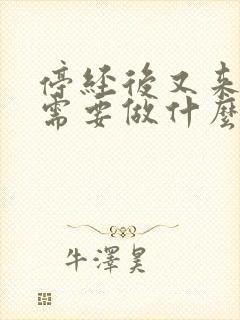 停經後又來
需要做什麼
牛澤昊